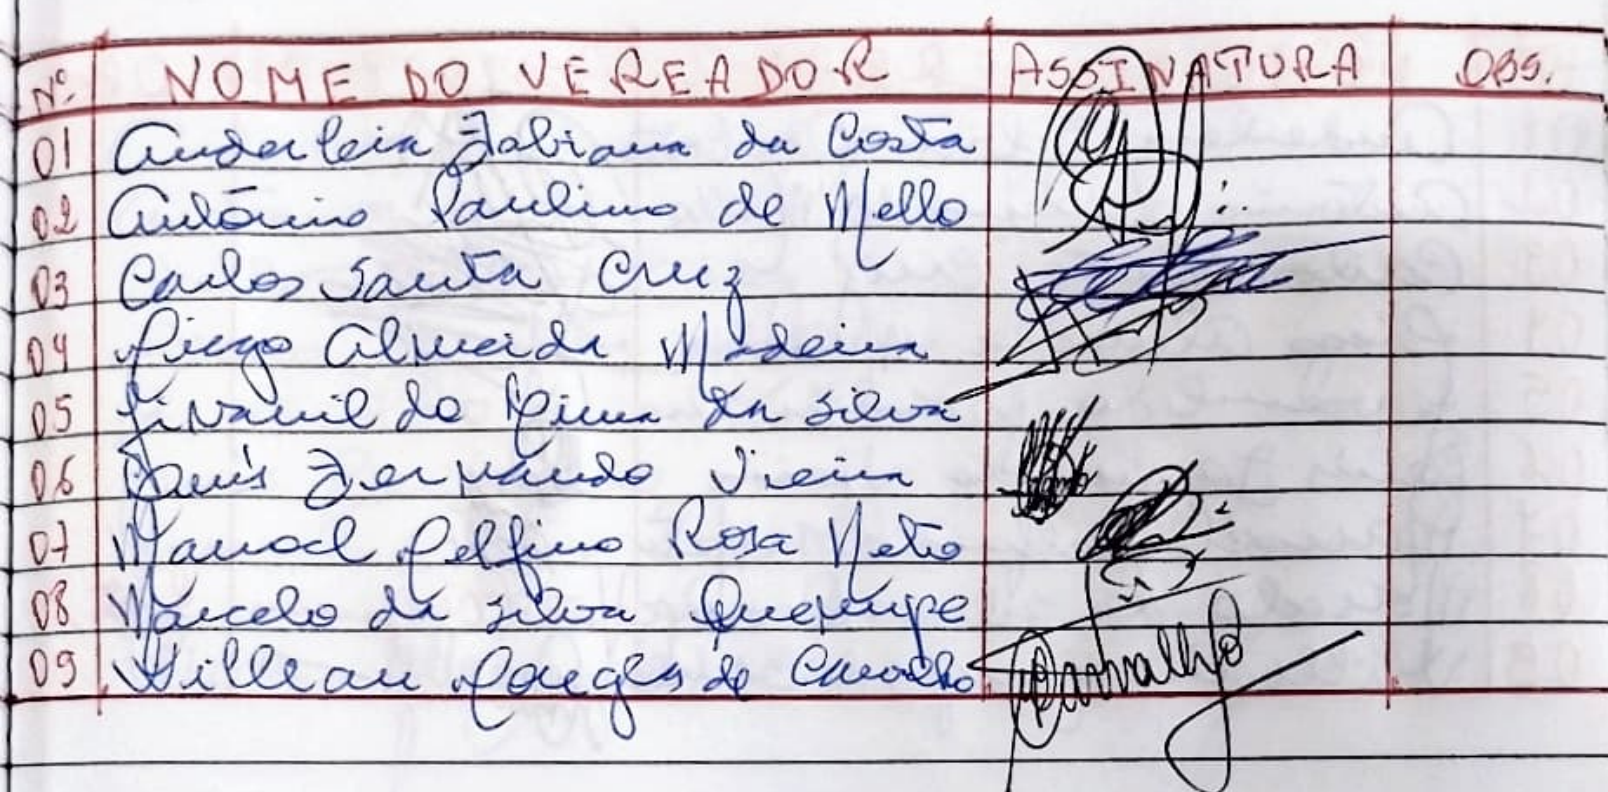 Nº. NOME DO VEREADOR ASSINATURA OBS.
01 Anderleia Fabiana da Costa
02 Antônio Paulino de Mello
03 Carlos Santa Cruz
04 Diego Almeida Madeira
05 Givanildo Lima da Silva
06 Luís Fernando Vieira
07 Manoel Delfino Rosa Neto
08 Marcelo da Silva
09 Willian Douglas de Carvalho Carvalho